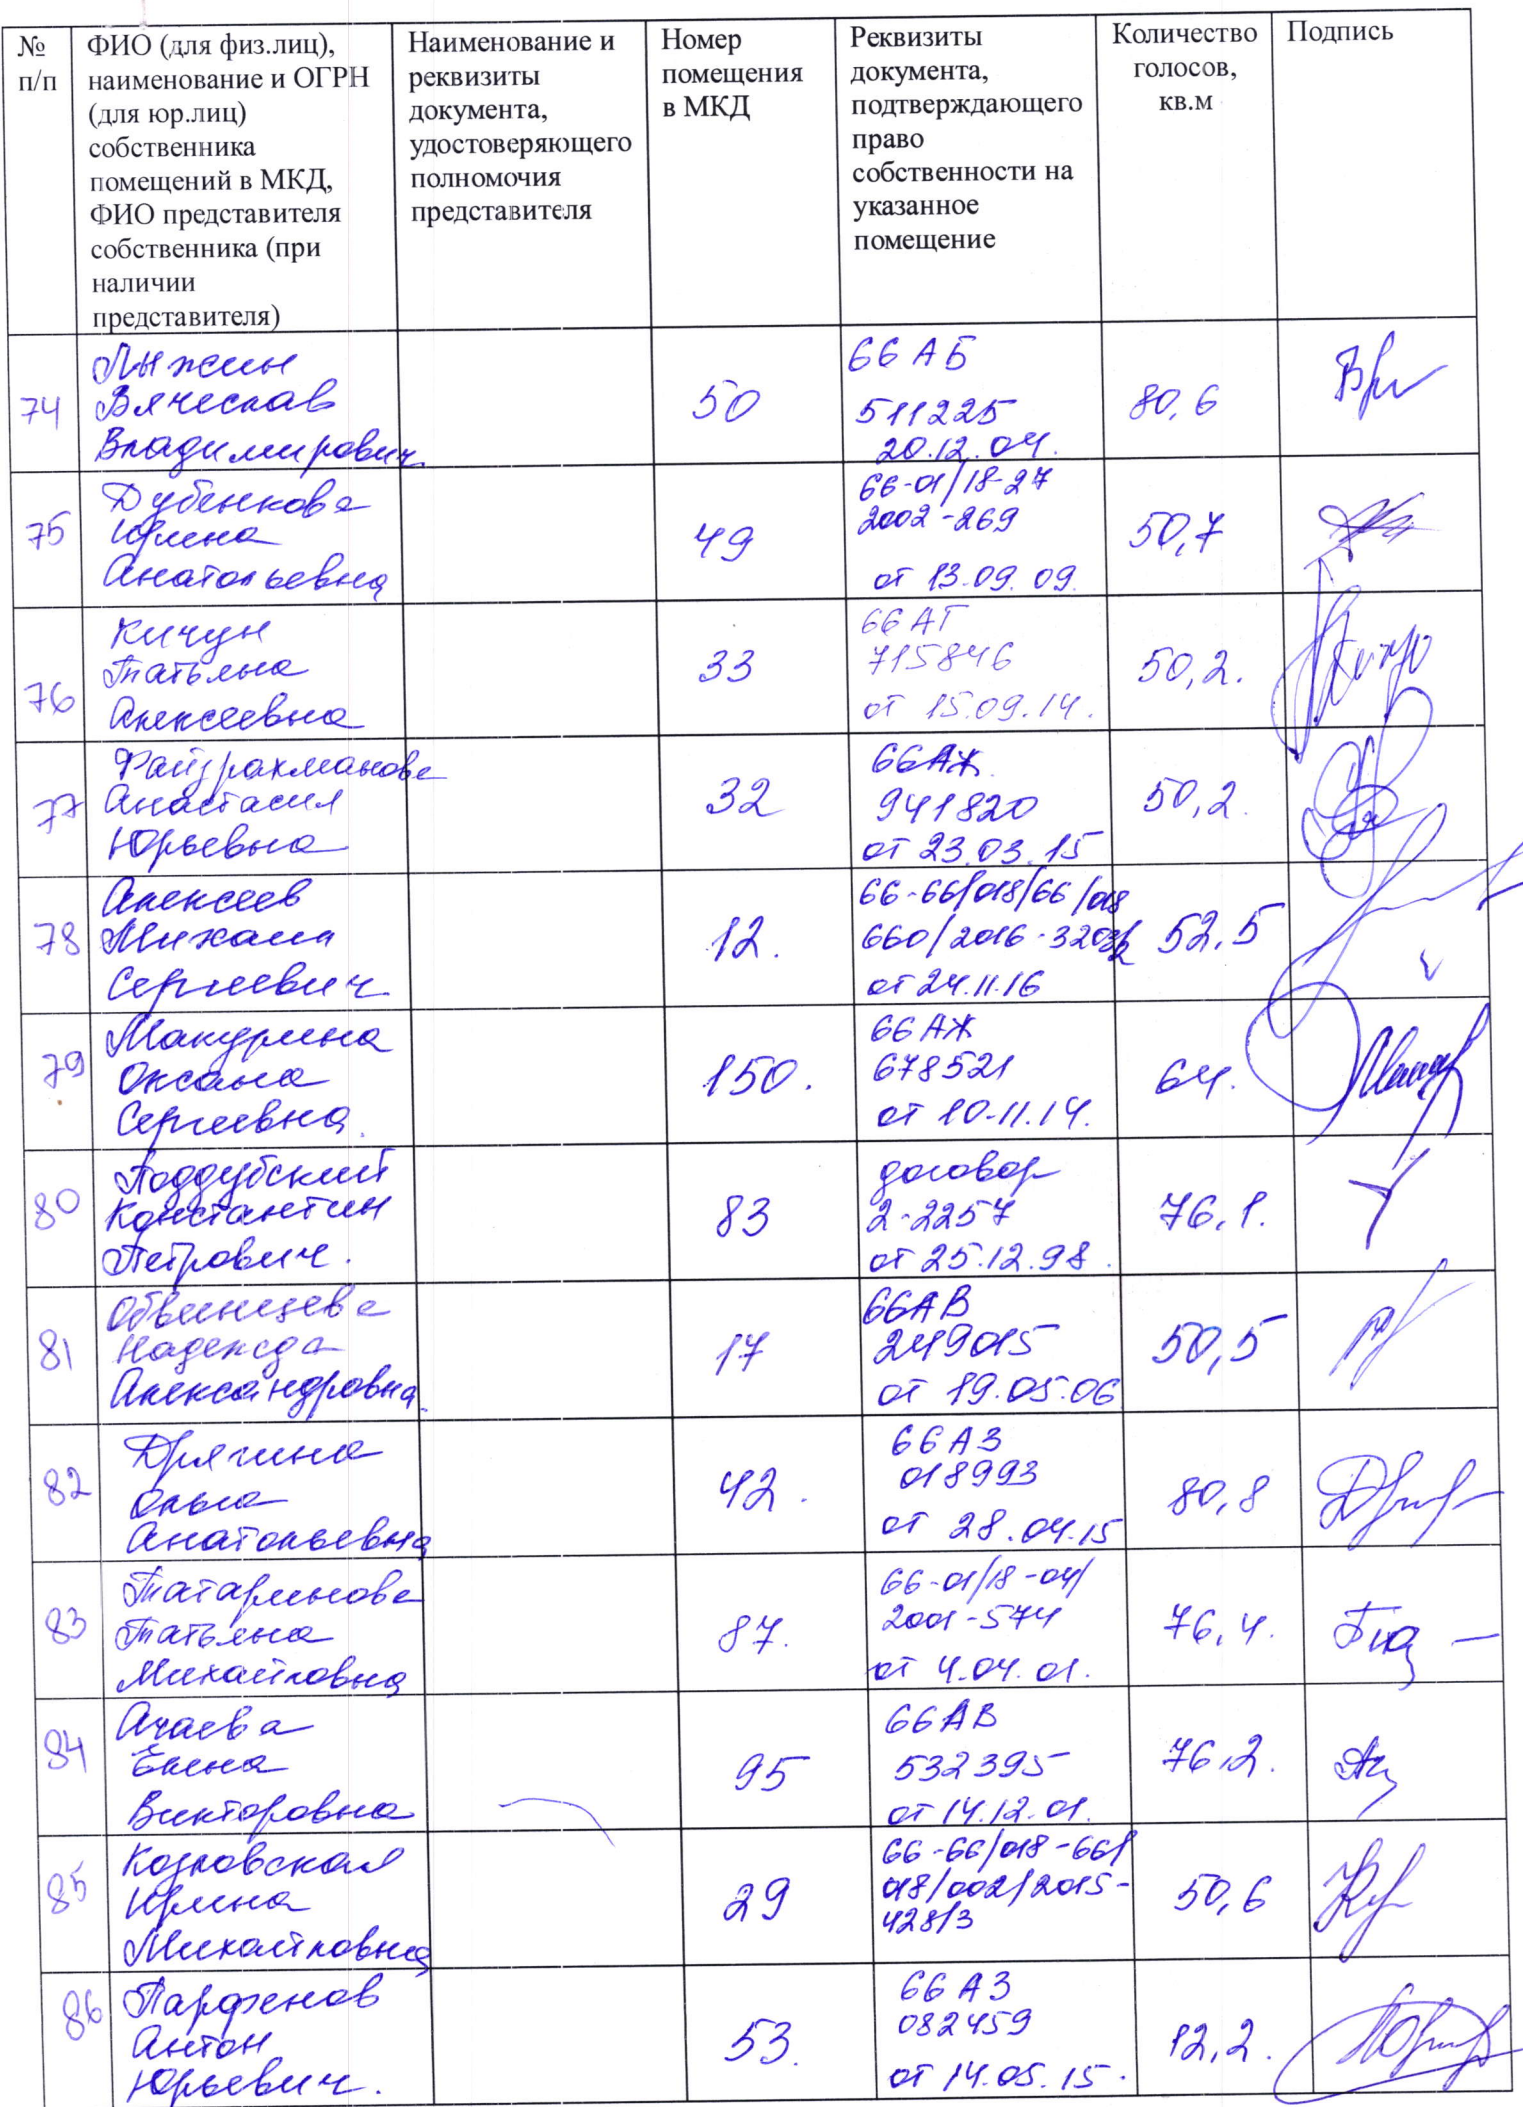 № п/п
ФИО (для физ.лиц),
наименование и ОГРН
(для юр.лиц)
собственника
помещений в МКД,
ФИО представителя
собственника (при
наличии
представителя)
Наименование и
реквизиты
документа,
удостоверяющего
полномочия
представителя
Номер
помещения
в МКД
Реквизиты
документа,
подтверждающего
право
собственности на
указанное
помещение
Количество
голосов,
кв.м
Подпись
74
Лыжин
Вячеслав
Владимирович
50
66 АБ
511225
20.12.04.
80,6
75
Дубенкова
Ирина
Анатольевна
49
66-01/18-27
2002-269
от 13.09.09.
50,7
76
Кичун
Татьяна
Алексеевна
33
66 АГ
715846
от 15.09.14.
50,2.
77
Файзрахманова
Анастасия
Юрьевна
32
66АЖ
941820
от 23.03.15
50,2.
78
Алексеев
Михаил
Сергеевич
12.
66-66/018/66/018
от 24.11.16
52,5
79
Макурина
Оксана
Сергеевна.
150.
66 АЖ
678521
от 10.11.14.
64.
80
Поддубский
Константин
Петрович.
83
договор
2-2257
от 25.12.98.
76,1.
81
Обвинцева
Надежда
Александровна.
17
66АВ
249015
от 19.05.06
50,5
82
Дрягина
Ольга
Анатольевна
42.
66 АЗ
018993
от 28.04.15
80,8
83
Татаринова
Татьяна
Михайловна
87.
66-01/18-04/
2001-574
от 4.04.01.
76,4.
84
Агаева
Елена
Викторовна
95
66 АВ
532395
от 14.12.01.
76,2.
85
Козловская
Ирина
Михайловна
29
66-66/018-66/
018/002/2015-
428/3
50,6
86
Парфенов
Антон
Юрьевич.
53.
66 АЗ
082459
от 14.05.15.
12,2.